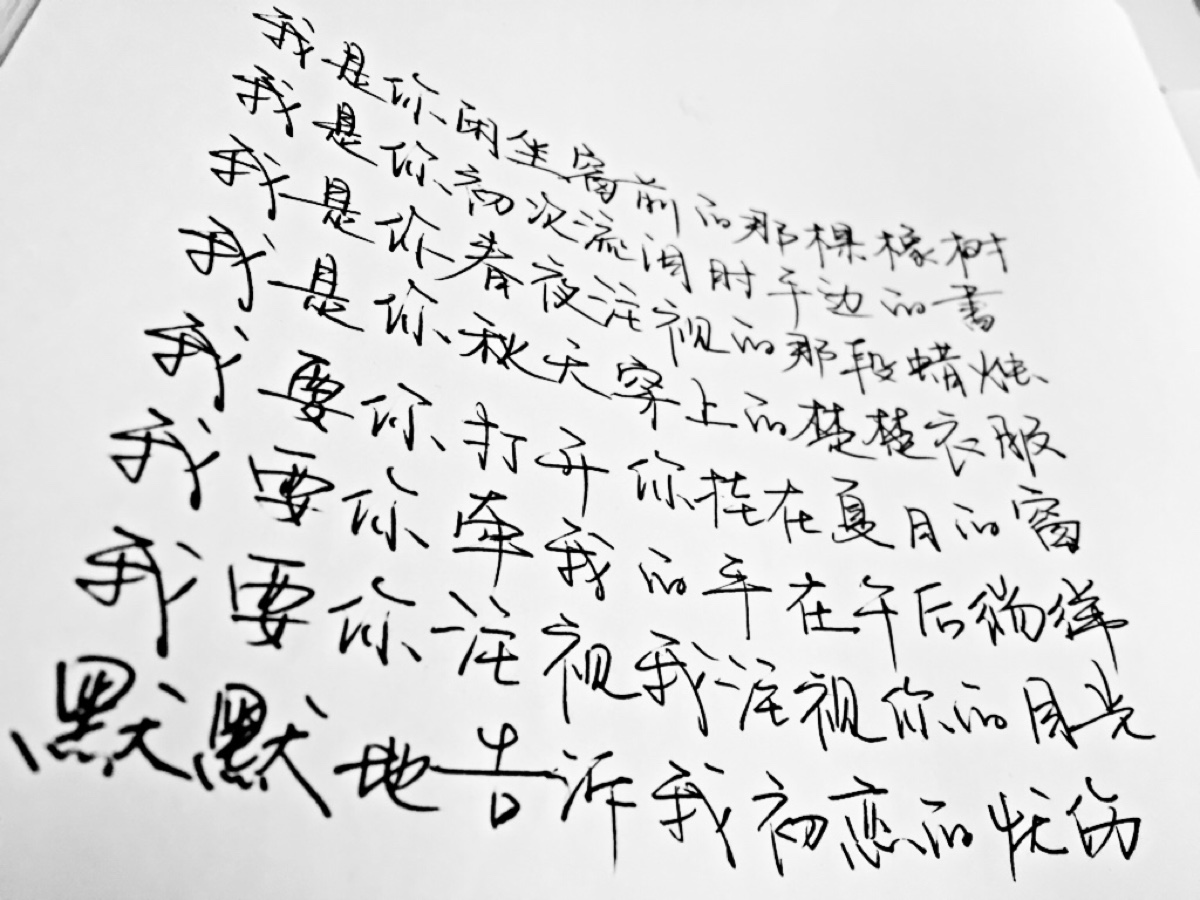 我是你闲坐窗前的那棵橡树
我是你初次流泪时手边的书
我是你春夜注视的那段蜡烛
我是你秋天穿上的楚楚衣服
我要你打开你挂在夏月的窗
我要你牵我的手在午后徜徉
我要你注视我注视你的目光
默默地告诉我初恋的忧伤